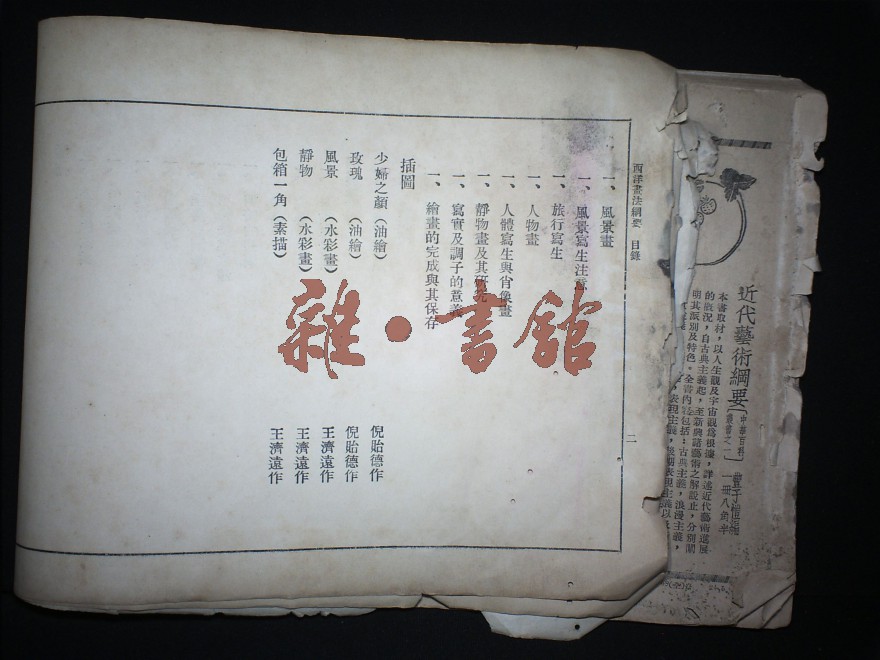 西洋畫法綱要 目錄
一、風景畫
一、風景寫生注意
一、旅行寫生
一、人物畫
一、人體寫生與肖像畫
一、靜物畫及其研究
一、寫實及調子的意義
一、繪畫的完成與其保存
插圖
少婦之顏(油繪) 倪貽德作
玫瑰(油繪) 倪貽德作
風景(水彩畫) 王濟遠作
靜物(水彩畫) 王濟遠作
包箱一角(素描) 王濟遠作
二
雜·書館
近代藝術綱要
中華百科叢書之一
豐子愷編
一冊八角半
本書取材,以人生觀及宇宙觀為根據,詳述近代藝術進展
的狀況,自古典主義起,至新興諸藝術之解說止,分別闡
明其派別及特色。全書內容包括:古典主義,浪漫主義,
表現主義,後期表現主義以